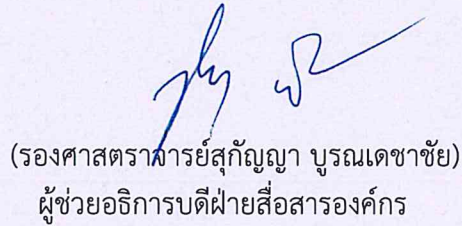 (รองศาสตราจารย์สุกัญญา บูรณเดชาชัย)
ผู้ช่วยอธิการบดีฝ่ายสื่อสารองค์กร